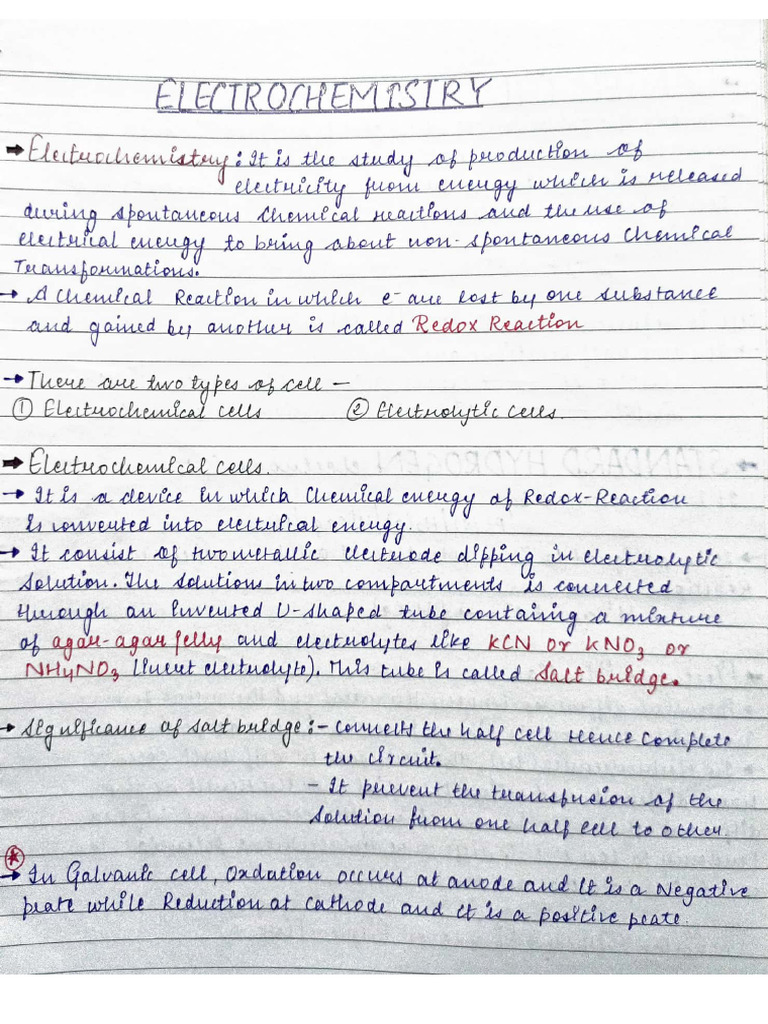 ELECTROCHEMISTRY
→ Electrochemistry: It is the study of production of
electricity from energy which is released
during spontaneous chemical reactions and the use of
electrical energy to bring about non-spontaneous Chemical
Transformations.
→ A Chemical Reaction in which e⁻ are lost by one substance
and gained by another is called Redox Reaction
→ There are two types of cell —
① Electrochemical cells ② Electrolytic Cells.
→ Electrochemical cells.
→ It is a device in which Chemical energy of Redox-Reaction
is converted into electrical energy.
→ It consist of two metallic electrode dipping in electrolytic
solution. The solutions in two compartments is connected
through an Inverted U-shaped tube containing a mixture
of agar-agar jelly and electrolytes like KCN or KNO₃ or
NH₄NO₃ (Inert electrolyte). This tube is called Salt bridge.
→ Significance of salt bridge :- connects the half cell Hence Complete
the circuit.
- It prevent the transfusion of the
solution from one half cell to other.
→ In Galvanic cell, Oxdation occurs at anode and it is a Negative
plate while Reduction at Cathode and it is a positive plate.